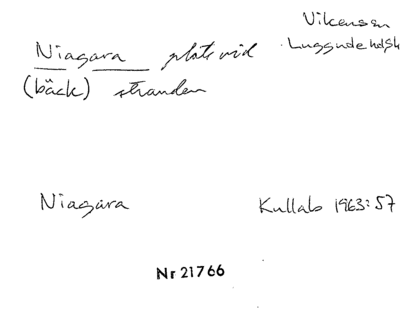 Vikens sn
Luggude hd Sk
Niagara plats vid
(bäck) stranden
Niagara
Kullab 1963:57
Nr 21766